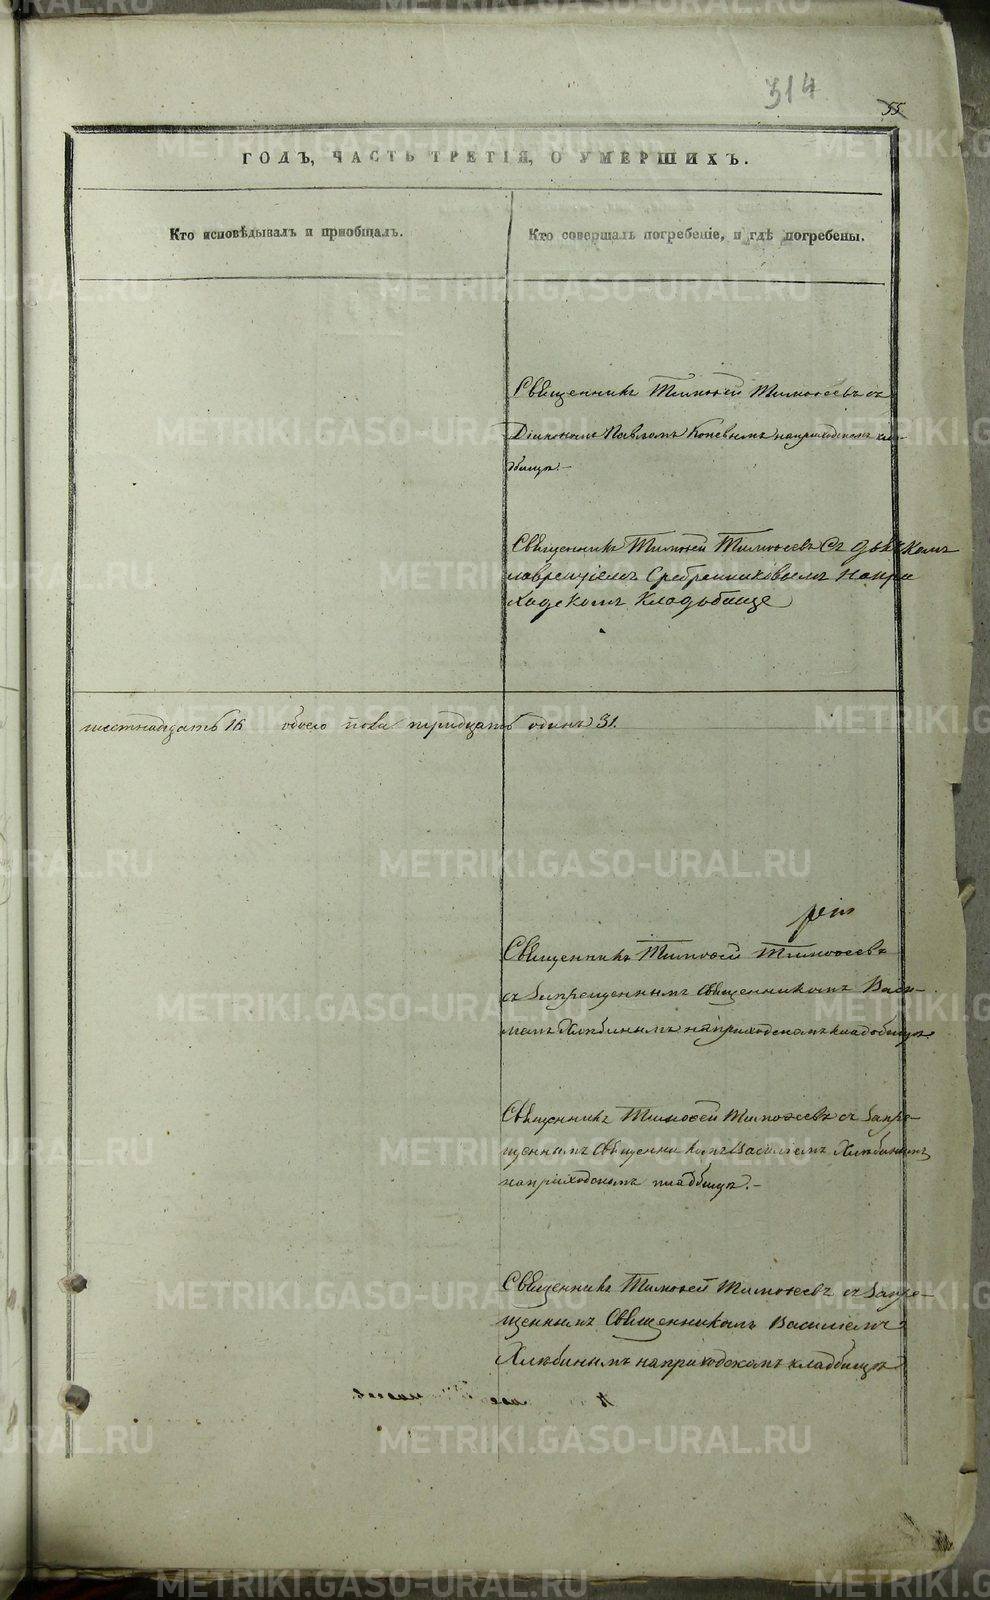 314
55
ГОДЪ, ЧАСТЬ ТРЕТІЯ, О УМЕРШИХЪ.
Кто исповѣдывалъ и пріобщалъ.
Кто совершалъ погребеніе, и гдѣ погребены.
Священникъ Тимоѳей Тимоѳеевъ съ
Діакономъ Павломъ Коневымъ наприходскомъ кла-
дбищѣ.-
Священникъ Тимоѳей Тимоѳеевъ Съ дьячкомъ
лаврентіемъ Сребренниковымъ Напри
Ходскомъ Кладьбище
шестнадцать 16 обоего пола тридцать одинъ 31.
Священникъ Тимоѳей Тимоѳеевъ
съ Запрещеннымъ Священникомъ Васи-
ліемъ Хлѣбинымъ наприходскомъ кладбищѣ.
Священникъ Тимоѳей Тимоѳеевъ съ Запре-
щеннымъ Священникомъ Василіемъ Хлѣбинымъ
наприходскомъ кладбищѣ.-
Священникъ Тимоѳей Тимоѳеевъ съ Запре-
щеннымъ Священникомъ Василіемъ
Хлѣбинымъ наприходскомъ кладбищѣ
METRIKI.GASO-URAL.RU